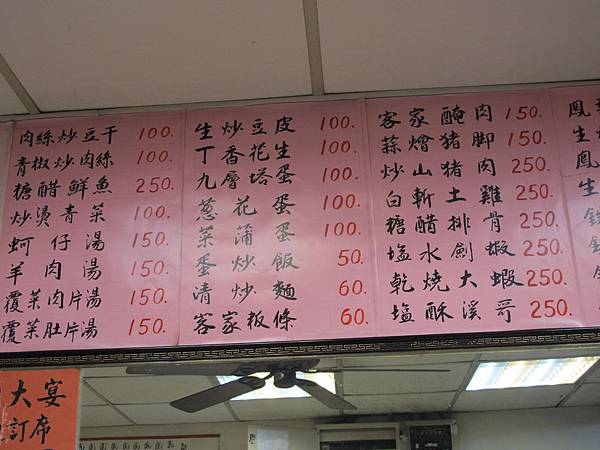 肉絲炒豆干 100.
青椒炒肉絲 100.
糖醋鮮魚 250.
炒燙青菜 100.
蚵仔湯 150.
羊肉湯 150.
覆菜肉片湯 150.
覆菜肚片湯 150.
生炒豆皮 100.
丁香花生 100.
九層塔蛋 100.
蔥花蛋 100.
菜蒲蛋 100.
蛋炒飯 50.
清炒麵 60.
客家板條 60.
客家醃肉 150.
蒜燴豬腳 150.
炒山豬肉 250.
白斬土雞 250.
糖醋排骨 250.
塩水劍蝦 250.
乾燒大蝦 250.
塩酥溪哥 250.
鳳
生
鳳
生
大宴
訂席